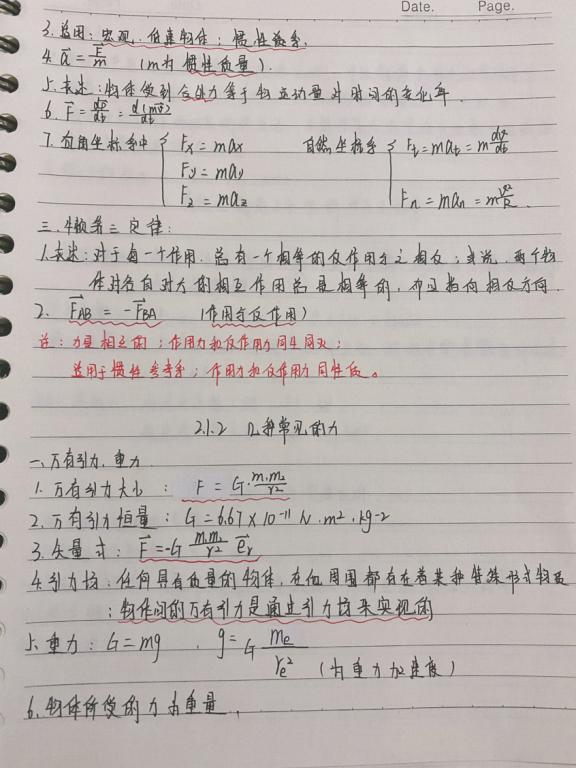 Date. Page.
3. 适用:宏观、低速物体;惯性参系.
4. a⃗ = F⃗/m (m为惯性质量).
5. 表述:物体受到合外力等于物运动量对时间的变化率.
6. F⃗ = dp⃗/dt = d(mv⃗)/dt
7. 直角坐标系中 { Fx = max 自然坐标系 { Ft = mat = m dv/dt
Fy = may
Fz = maz Fn = man = m v²/R.
三. 牛顿第三定律:
1. 表述:对于每一个作用. 总有一个相等的反作用与之相反;或说, 两个物
体对各自对方的相互作用总是相等的, 而且指向相反方向.
2. F⃗AB = -F⃗BA (作用与反作用)
注:力是相互的;作用力和反作用力同生同灭;
适用于惯性参考系;作用力和反作用力同性质。
2.1.2 几种常见的力
一、万有引力、重力
1. 万有引力大小: F = G·m₁m₂/r²
2. 万有引力恒量: G = 6.67×10⁻¹¹ N·m²·kg⁻²
3. 矢量式: F⃗ = -G m₁m₂/r² e⃗r
4. 引力场:任何具有质量的物体, 在他周围都存在着某种特殊形式物质
;物体间的万有引力是通过引力场来实现的
5. 重力: G = mg , g = G me/re² (为重力加速度)
6. 物体所受的力为重量.